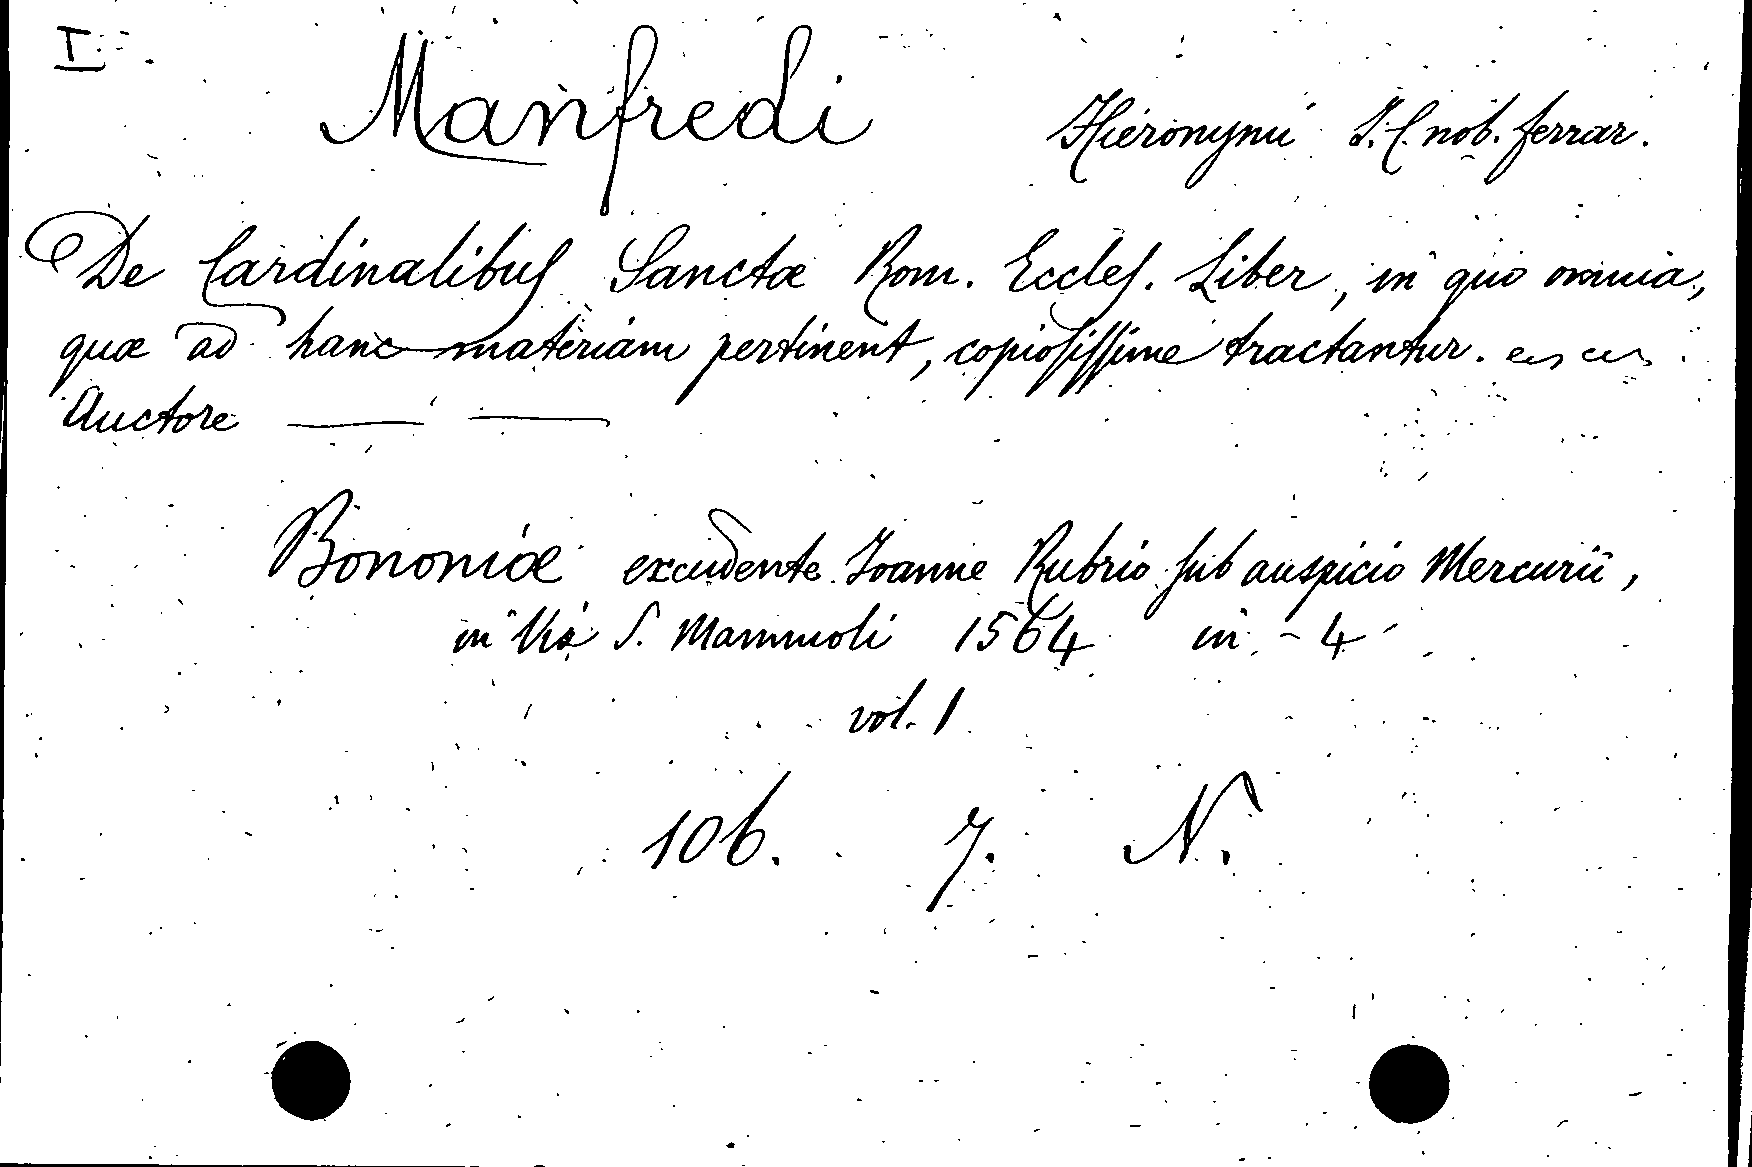 I
Manfredi Hieronymi I. C. nob. ferrar.
De Cardinalibus Sanctæ Rom. Eccles. Liber, in quo omnia,
quæ ad hanc materiam pertinent, copiosissime tractantur.
Auctore — —
Bononiæ excudente Joanne Rubrio sub auspicio Mercurii,
in Via S. Mammoli 1564 in - 4
vol. 1
106. 7. N.